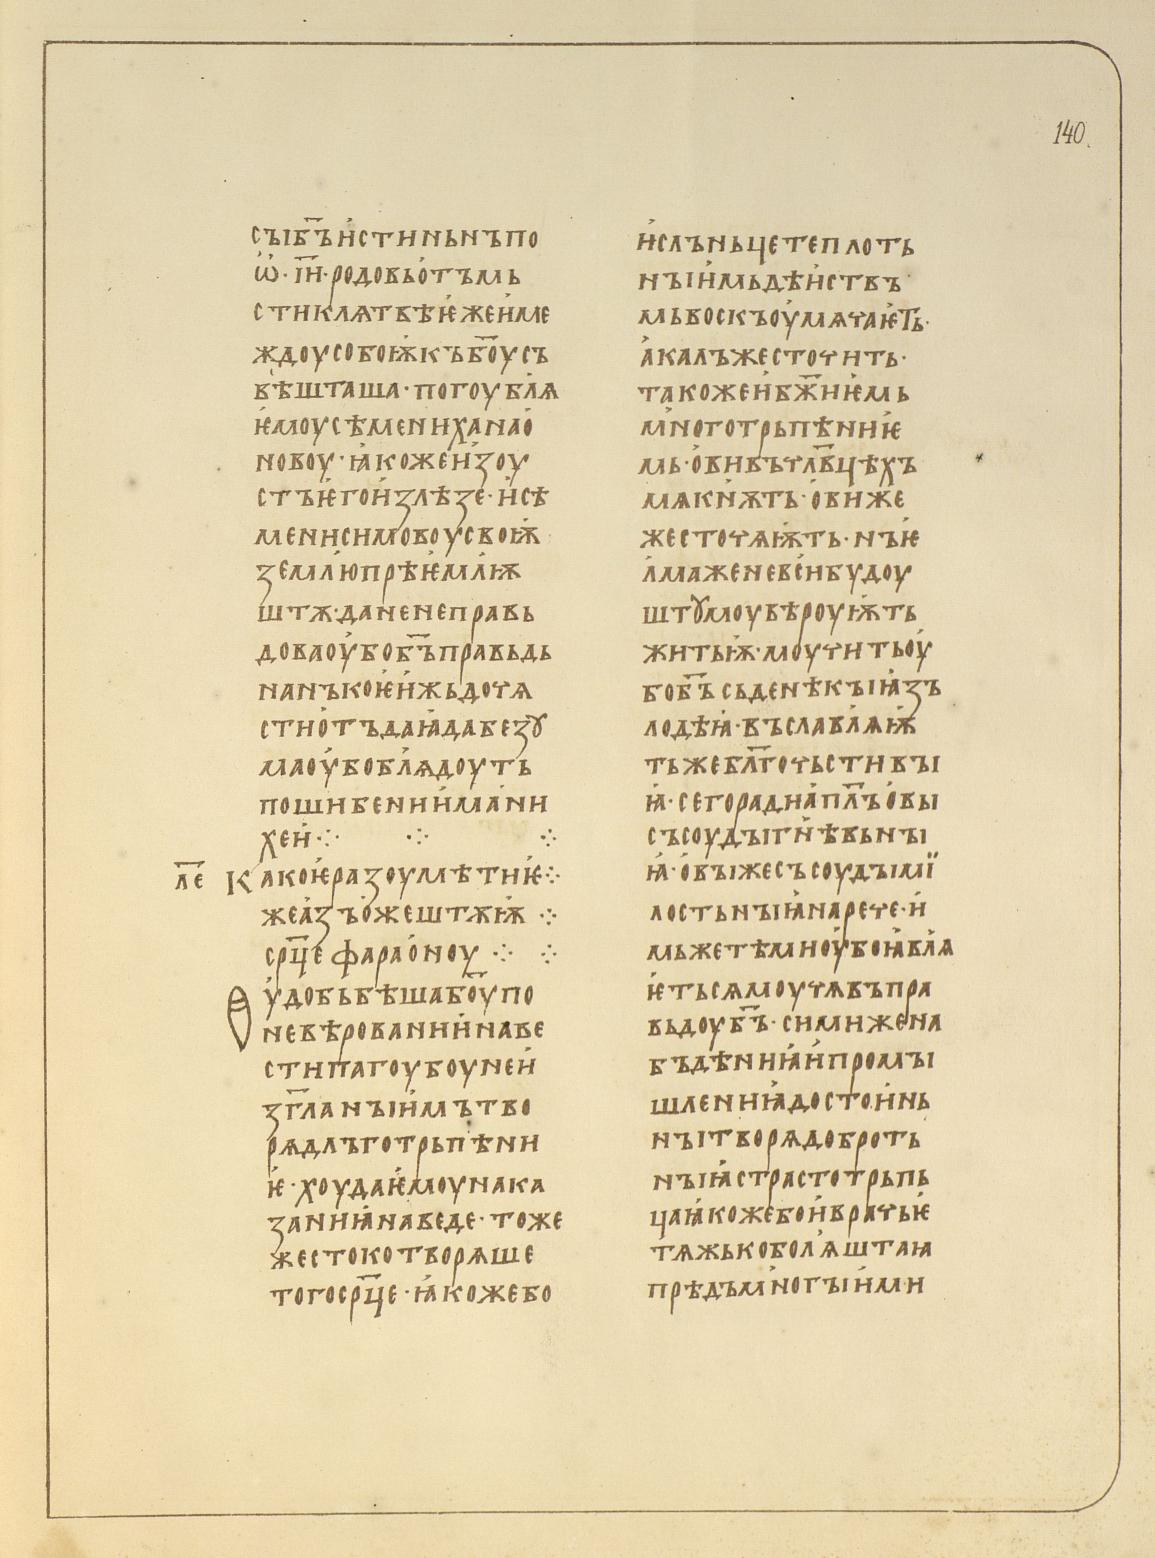 140
съıб҃ъıстиньнъпо
ѡ҅·і҃н·родовьо́тъмь
стиклѧтвѣѥжеи҅ме
ждоусобоѭкъб҃оусъ
вѣшташа·погоублꙗ
ѥмоусѣменихана҅о
новоу·ꙗкожеи҅зоу
стъѥгои҅злѣзе·и҅сѣ
менисимовоусвоѭ
землюпрѣѥмлѭ
штѫ·даненеправь
доваоу҅бобъ҃правьдь
нанъкоѥи҅жьдочѧ
стио҅тъдаꙗдабезꙋ
маоу҅боблѧдоуть
пошибениима҅ни
хеи҅ ⁘ ⁘ ⁘
л҃е Какоѥразоумѣтиѥ⁘
жеа҅зъо҅жештѫѭ ⁘
ср҃цефарао҅ноу ⁘ ⁘
Оу҅добьбѣшабо҃упо
невѣрованиина҅ве
стипагоубоунеи҅
зг҃ланъıи҅мътво
рѧдлъготрьпѣни
ѥ·худаѥмоунака
заниꙗнаведе·тоже
жестокотворѧше
тогоср҃це·ꙗкожебо
и҅слъньцетеплоть
нъıи҅мьдѣи҅ствъ
мьвоскъоу҅мѧчаѥть·
а҅калъжесточить·
такожеи҅бж҃ниѥмь
многотрьпѣниѥ
мь·о҅вивъчлв҃цѣхъ
мѧкнѫть·о҅виже
жесточѧѭть·нъѥ
лмаженевеибудоу
штꙋмоувѣроуѭть
житьѭ·моучитьоу҅
бобъ҃сьденѣкъıꙗзъ
лодѣꙗ·въславлѧѭ
тьжебл҃гочьстивъı
ꙗ·сегорадиа҅пл҃ъо҅вы
съсоудъıгнѣвьнъı
ꙗ·о҅въıжесъсоудъıмї
лостьнъıꙗнарече·и҅
мьжетѣмноу҅боꙗвлꙗ
ѥтьсѧмоучѧвъпра
вьдоубъ҃·симижена
бъдѣниꙗи҅промъı
шлениꙗдостои҅нь
нъıтворѧдоброть
нъıꙗстрастотрьпь
цаꙗкожебои҅врачьѥ
тѧжькоболѧштаꙗ
прѣдъмногъıи҅ми